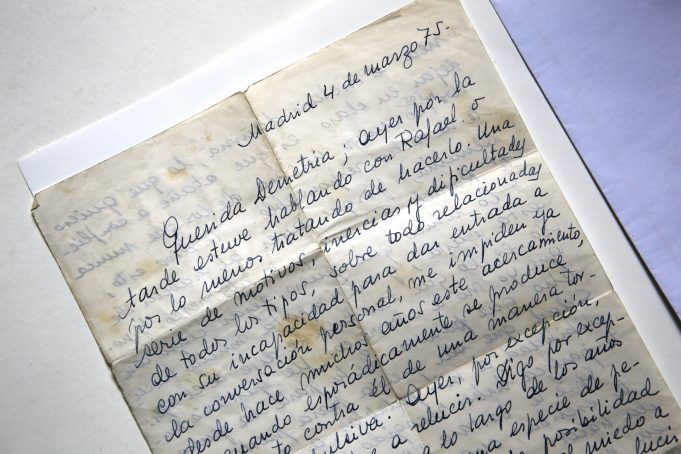 Madrid 4 de marzo 75.
Querida Demetria; ayer por la
tarde estuve hablando con Rafael o
por lo menos tratando de hacerlo. Una
serie de motivos, inercias y dificultades
de todos los tipos, sobre todo relacionadas
con su incapacidad para dar entrada a
la conversación personal, me impiden ya
desde hace muchos años este acercamiento,
cuando esporádicamente se produce
contra él de una manera tor-
Ayer, por excepción,
a relucir. Digo por excep-
a lo largo de los años
una especie de pe-
posibilidad
el miedo a